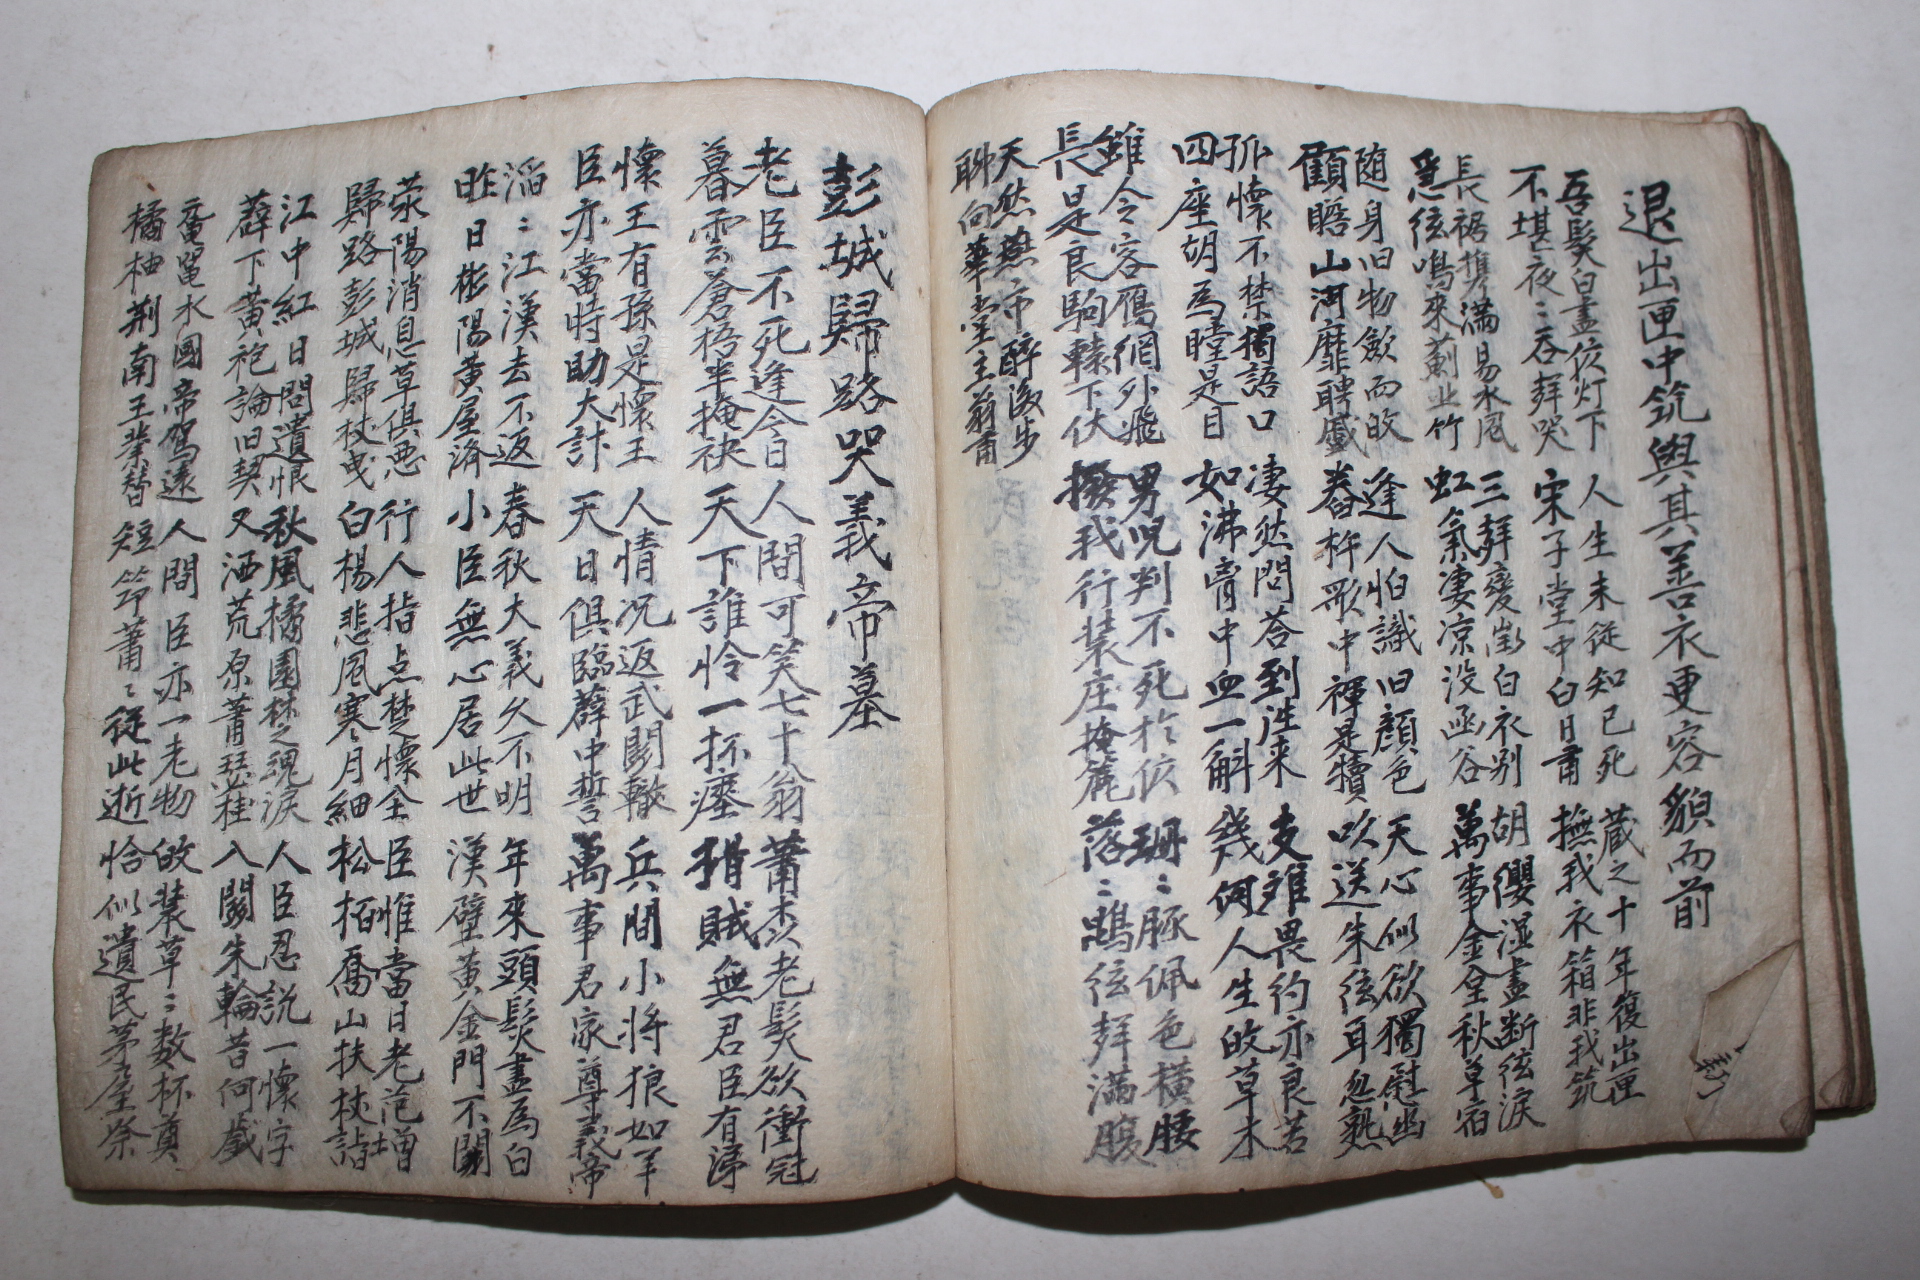 退出匣中筑與其善衣更容貌而前
吾髮白盡侅灯下 人生未從知己死 蔵之十年復出匣
不堪夜〻吞聲哭 宋子堂中白日肅 撫我衣箱非我筑
長裾携滿易水風 三聲變徵白衣别 胡纓湿盡断弦淚
急弦鳴來薊北竹 虹氣凄凉没函谷 萬事金臺秋草宿
随身旧物斂而收 逢人怕識旧顔色 天心似欲獨慰幽
顧瞻山河靡聘蹙 舂杵歌中褌是犢 吹送朱弦耳忽熟
孤懷不禁獨語口 凄然問荅到徃来 支難畏約亦良苦
四座胡為瞠是目 如沸膏中血一斛 幾何人生的草木
雖令容鴈網外飛 男児判不死於侅 珊〻豚佩色横腰
長是良駒轅下伏 撥我行装庄掩簏 落〻鵾弦聲滿腹
天然燕市醉後步
聊向華堂主翁肅
彭城歸路哭義帝墓
老臣不死逢今日 人間可笑七十翁 蕭森老髮欲衝冠
暮雲蒼梧半掩袂 天下誰怜一抔瘞 猾賊無君臣有涕
懷王有孫是懷王 人情况返武關轍 兵間小將狼如羊
臣亦當時助大計 天日俱臨薛中誓 萬事君家尊義帝
滔〻江漢去不返 春秋大義久不明 年來頭髮盡為白
昨日彬陽黄屋済 小臣無心居此世 漢壁黄金門不閉
荥陽消息草俱悪 行人指点楚懷全 臣惟當日老范增
歸路彭城歸杖曳 白楊悲風寒月細 松栢喬山扶杖詣
江中紅日問遺恨 秋風橘園楚魂淚 人臣忍説一懷字
薛下黄袍論旧契 又洒荒原蕭瑟桂 入關朱輪昔何戲
奄黽水國帝駕遠 人間臣亦一老物 收裝草〻数杯奠
橘柚荆南王業替 短笻蕭〻從此逝 恰似遺民茅屋祭